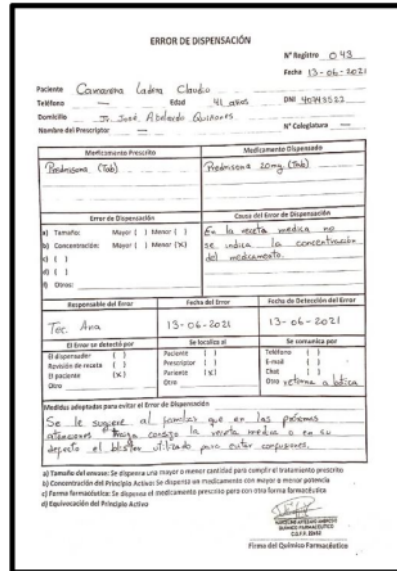 ERROR DE DISPENSACIÓN
N° Registro 043
Fecha 13-06-2021
Paciente Camarena Ladera Claudio
Teléfono — Edad 41 años DNI 40743522
Domicilio Jr. José Abelardo Quiñones
Nombre del Prescriptor — N° Colegiatura —
Medicamento Prescrito Medicamento Dispensado
Prednisona (Tab) Prednisona 20mg (Tab)
Error de Dispensación Causa del Error de Dispensación
a) Tamaño: Mayor ( ) Menor ( ) En la receta medica no
b) Concentración: Mayor ( ) Menor (X) se indica la concentración
c) ( ) del medicamento.
d) ( )
f) Otros:
Responsable del Error Fecha del Error Fecha de Detección del Error
Tec. Ana 13-06-2021 13-06-2021
El Error se detectó por Se localiza al Se comunica por
El dispensador ( ) Paciente ( ) Teléfono ( )
Revisión de receta ( ) Prescriptor ( ) E-mail ( )
El paciente (X) Pariente (X) Chat ( )
Otro Otro Otro retorna a botica
Medidas adoptadas para evitar el Error de Dispensación
Se le sugiere al familiar que en las próximas
atenciones traiga consigo la receta medica o en su
defecto el blister utilizado para evitar confusiones.
a) Tamaño del envase: Se dispensa una mayor o menor cantidad para cumplir el tratamiento prescrito
b) Concentración del Principio Activo: Se dispensa un medicamento con mayor o menor potencia
c) Forma farmacéutica: Se dispensa el medicamento prescrito pero con otra forma farmacéutica
d) Equivocación del Principio Activo
QUÍMICO FARMACÉUTICO
C.Q.F.P.
Firma del Químico Farmacéutico